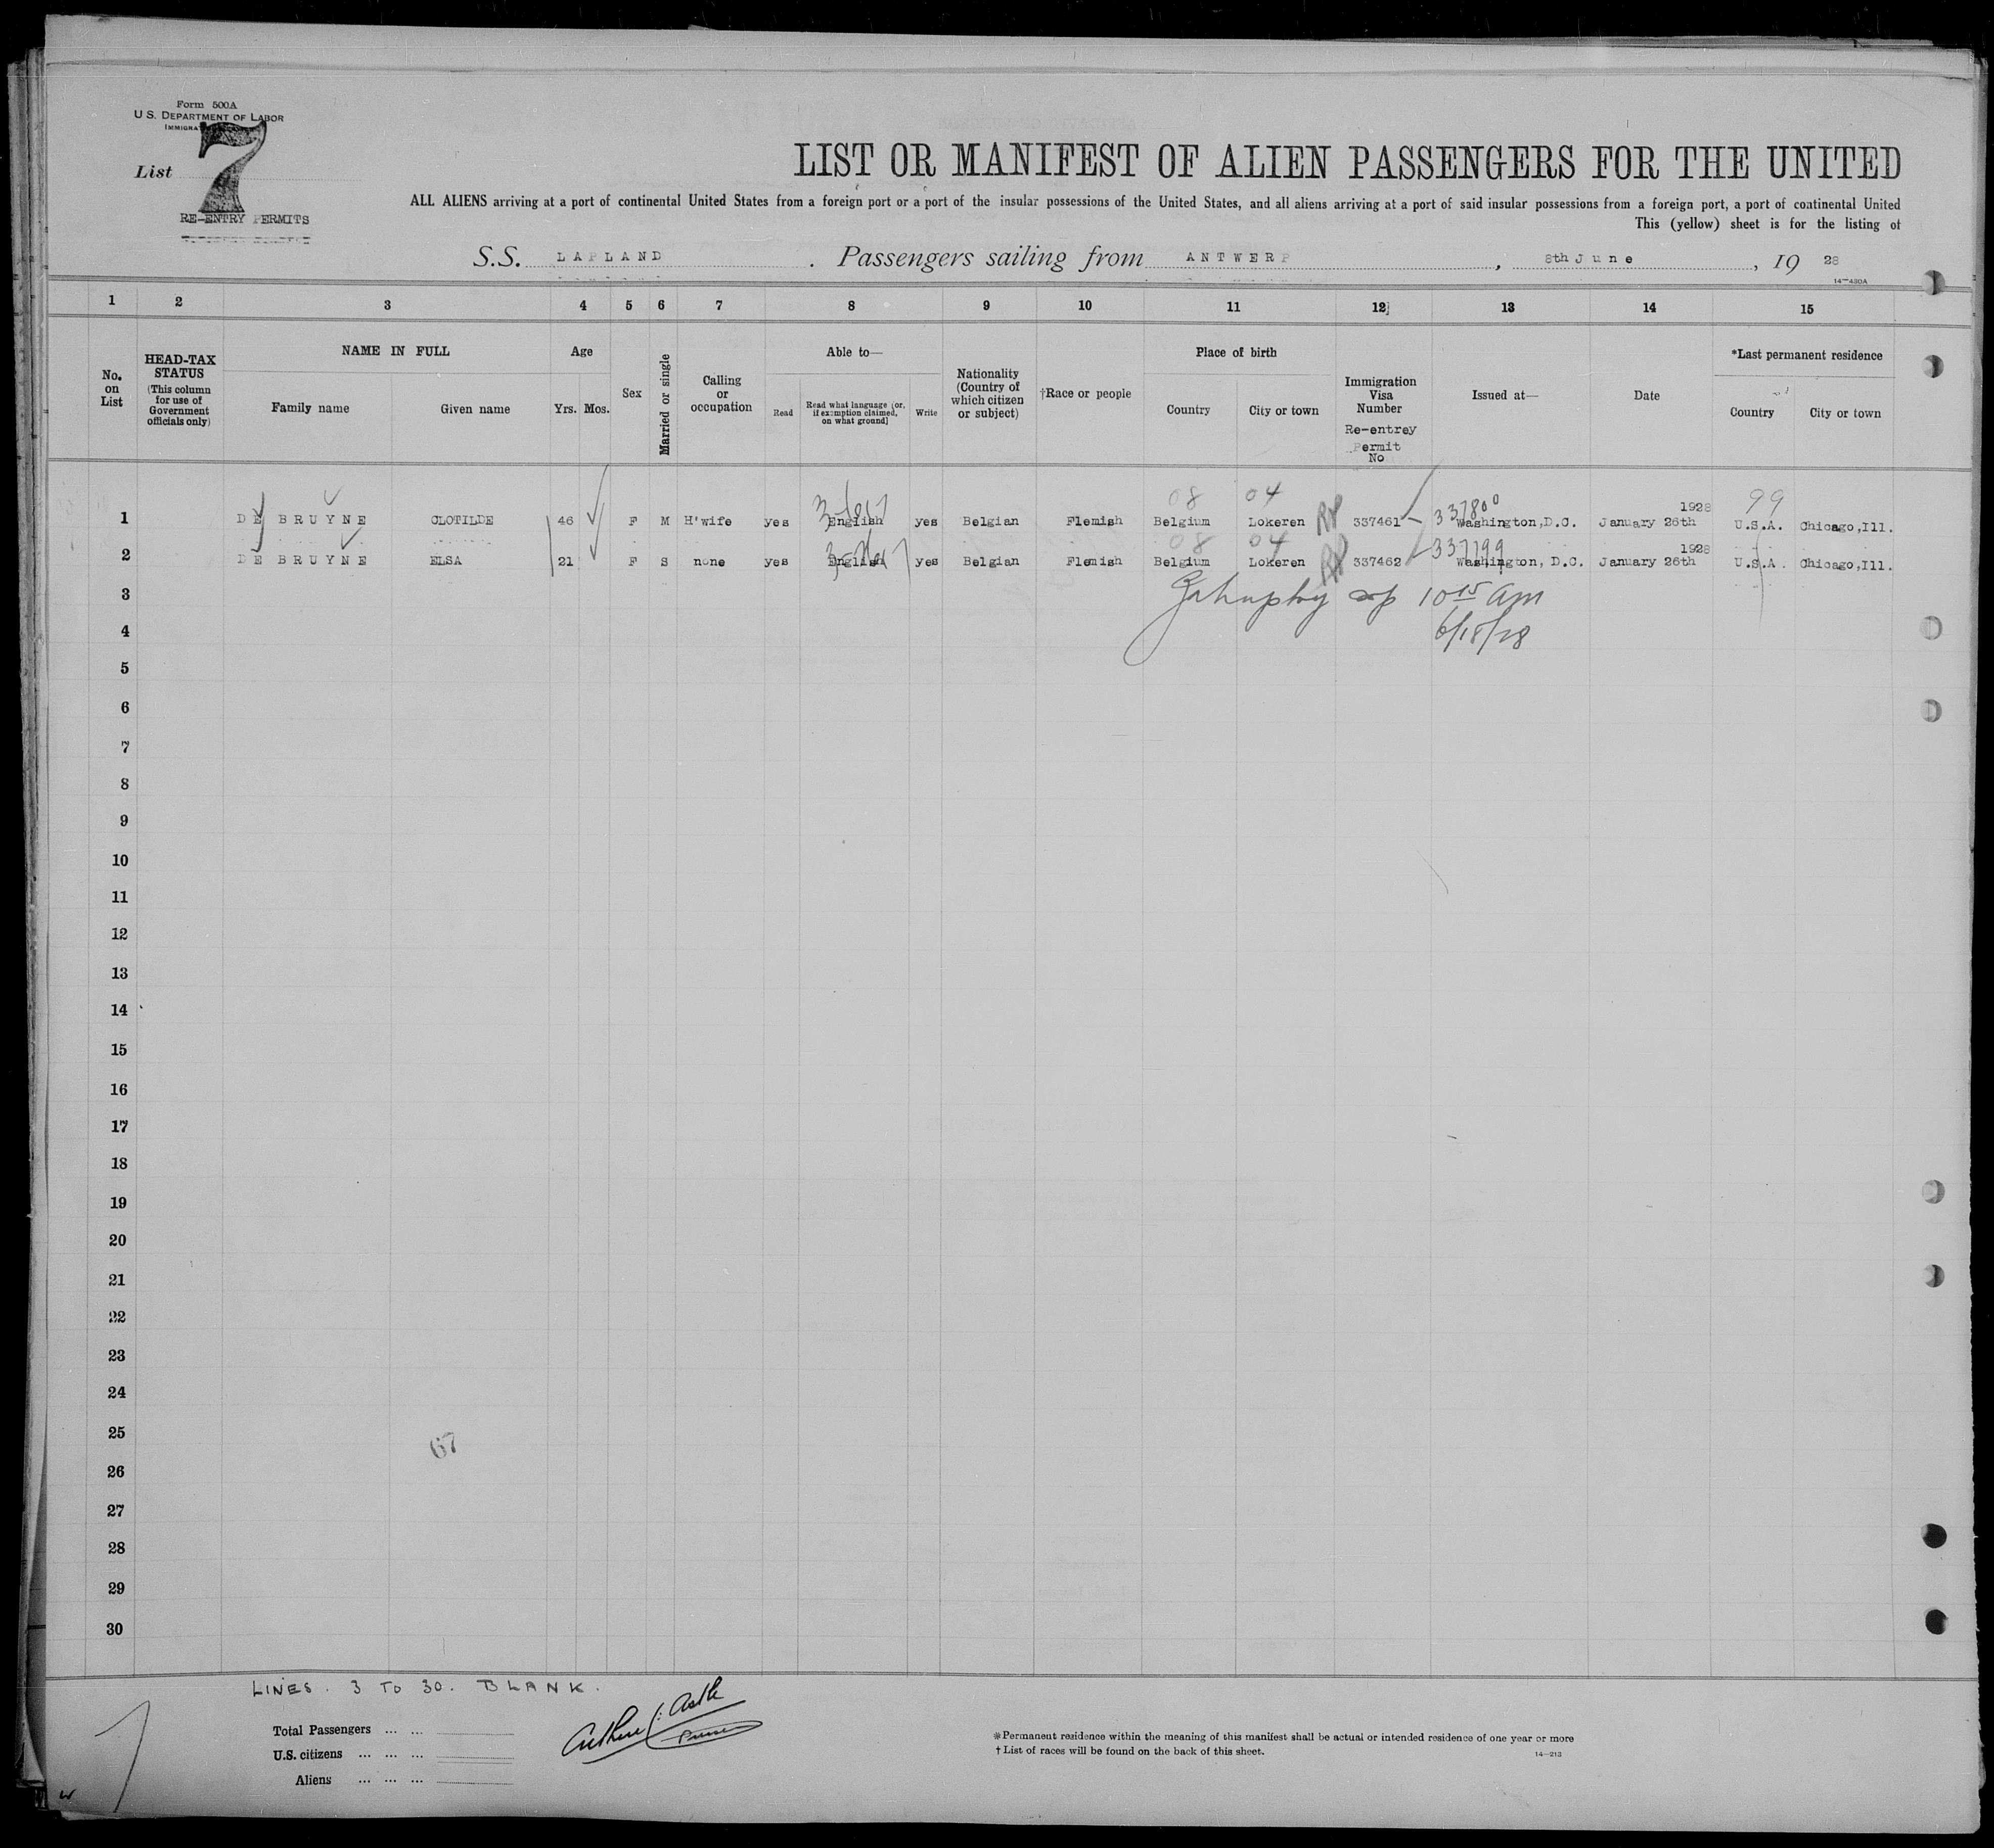 Form 500A
U.S. DEPARTMENT OF LABOR
List 7
RE-ENTRY PERMITS
LIST OR MANIFEST OF ALIEN PASSENGERS FOR THE UNITED
ALL ALIENS arriving at a port of continental United States from a foreign port or a port of the insular possessions of the United States, and all aliens arriving at a port of said insular possessions from a foreign port, a port of continental United
This (yellow) sheet is for the listing of
S.S. LAPLAND. Passengers sailing from ANTWERP, 8th June, 19 28
14-430A
1 2 3 4 5 6 7 8 9 10 11 12 13 14 15
No. on List
HEAD-TAX STATUS (This column for use of Government officials only)
NAME IN FULL
Family name Given name
Age
Yrs. Mos.
Sex
Married or single
Calling or occupation
Able to—
Read
Read what language [or, if exemption claimed, on what ground]
Write
Nationality (Country of which citizen or subject)
†Race or people
Place of birth
Country City or town
Immigration Visa Number
Re-entrey Permit No
Issued at—
Date
*Last permanent residence
Country City or town
08 04 337800 1928 99
1 DE BRUYNE CLOTILDE 46 F M H'wife yes English yes Belgian Flemish Belgium Lokeren 337461 Washington,D.C. January 26th U.S.A. Chicago,Ill.
08 04 337799 1928
2 DE BRUYNE ELSA 21 F S none yes English yes Belgian Flemish Belgium Lokeren 337462 Washington, D.C. January 26th U.S.A. Chicago,Ill.
3 10 15 am
4 6/18/28
5
6
7
8
9
10
11
12
13
14
15
16
17
18
19
20
21
22
23
24
25
67
26
27
28
29
30
LINES. 3 TO 30. BLANK.
Total Passengers ... ...
U.S. citizens ... ... ...
Aliens ... ... ...
*Permanent residence within the meaning of this manifest shall be actual or intended residence of one year or more
†List of races will be found on the back of this sheet.
14-213